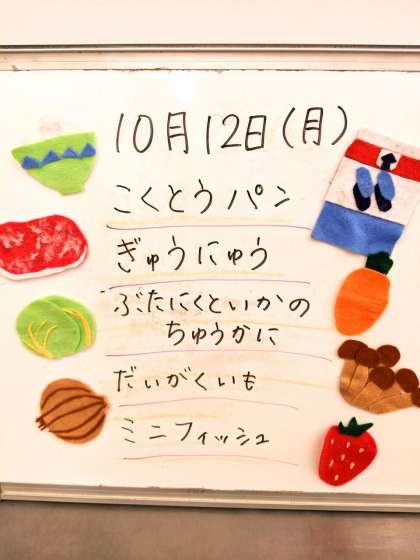 10月12日(月)
こくとうパン
ぎゅうにゅう
ぶたにくといかの
ちゅうかに
だいがくいも
ミニフィッシュ